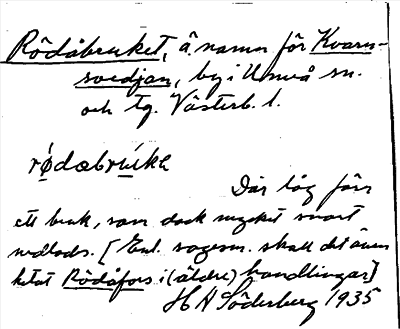 Rödåbruket, ä. namn för Kvarn-
svedjan, by i Umeå sn.
och tg. Västerb. l.
rødabruckke
Där låg förr
ett bruk, som dock mycket snart
nedlads. [Enl. sagesm. skall det även
hetat Rödåfors i (äldre) handlingar]
H A Söderberg 1935